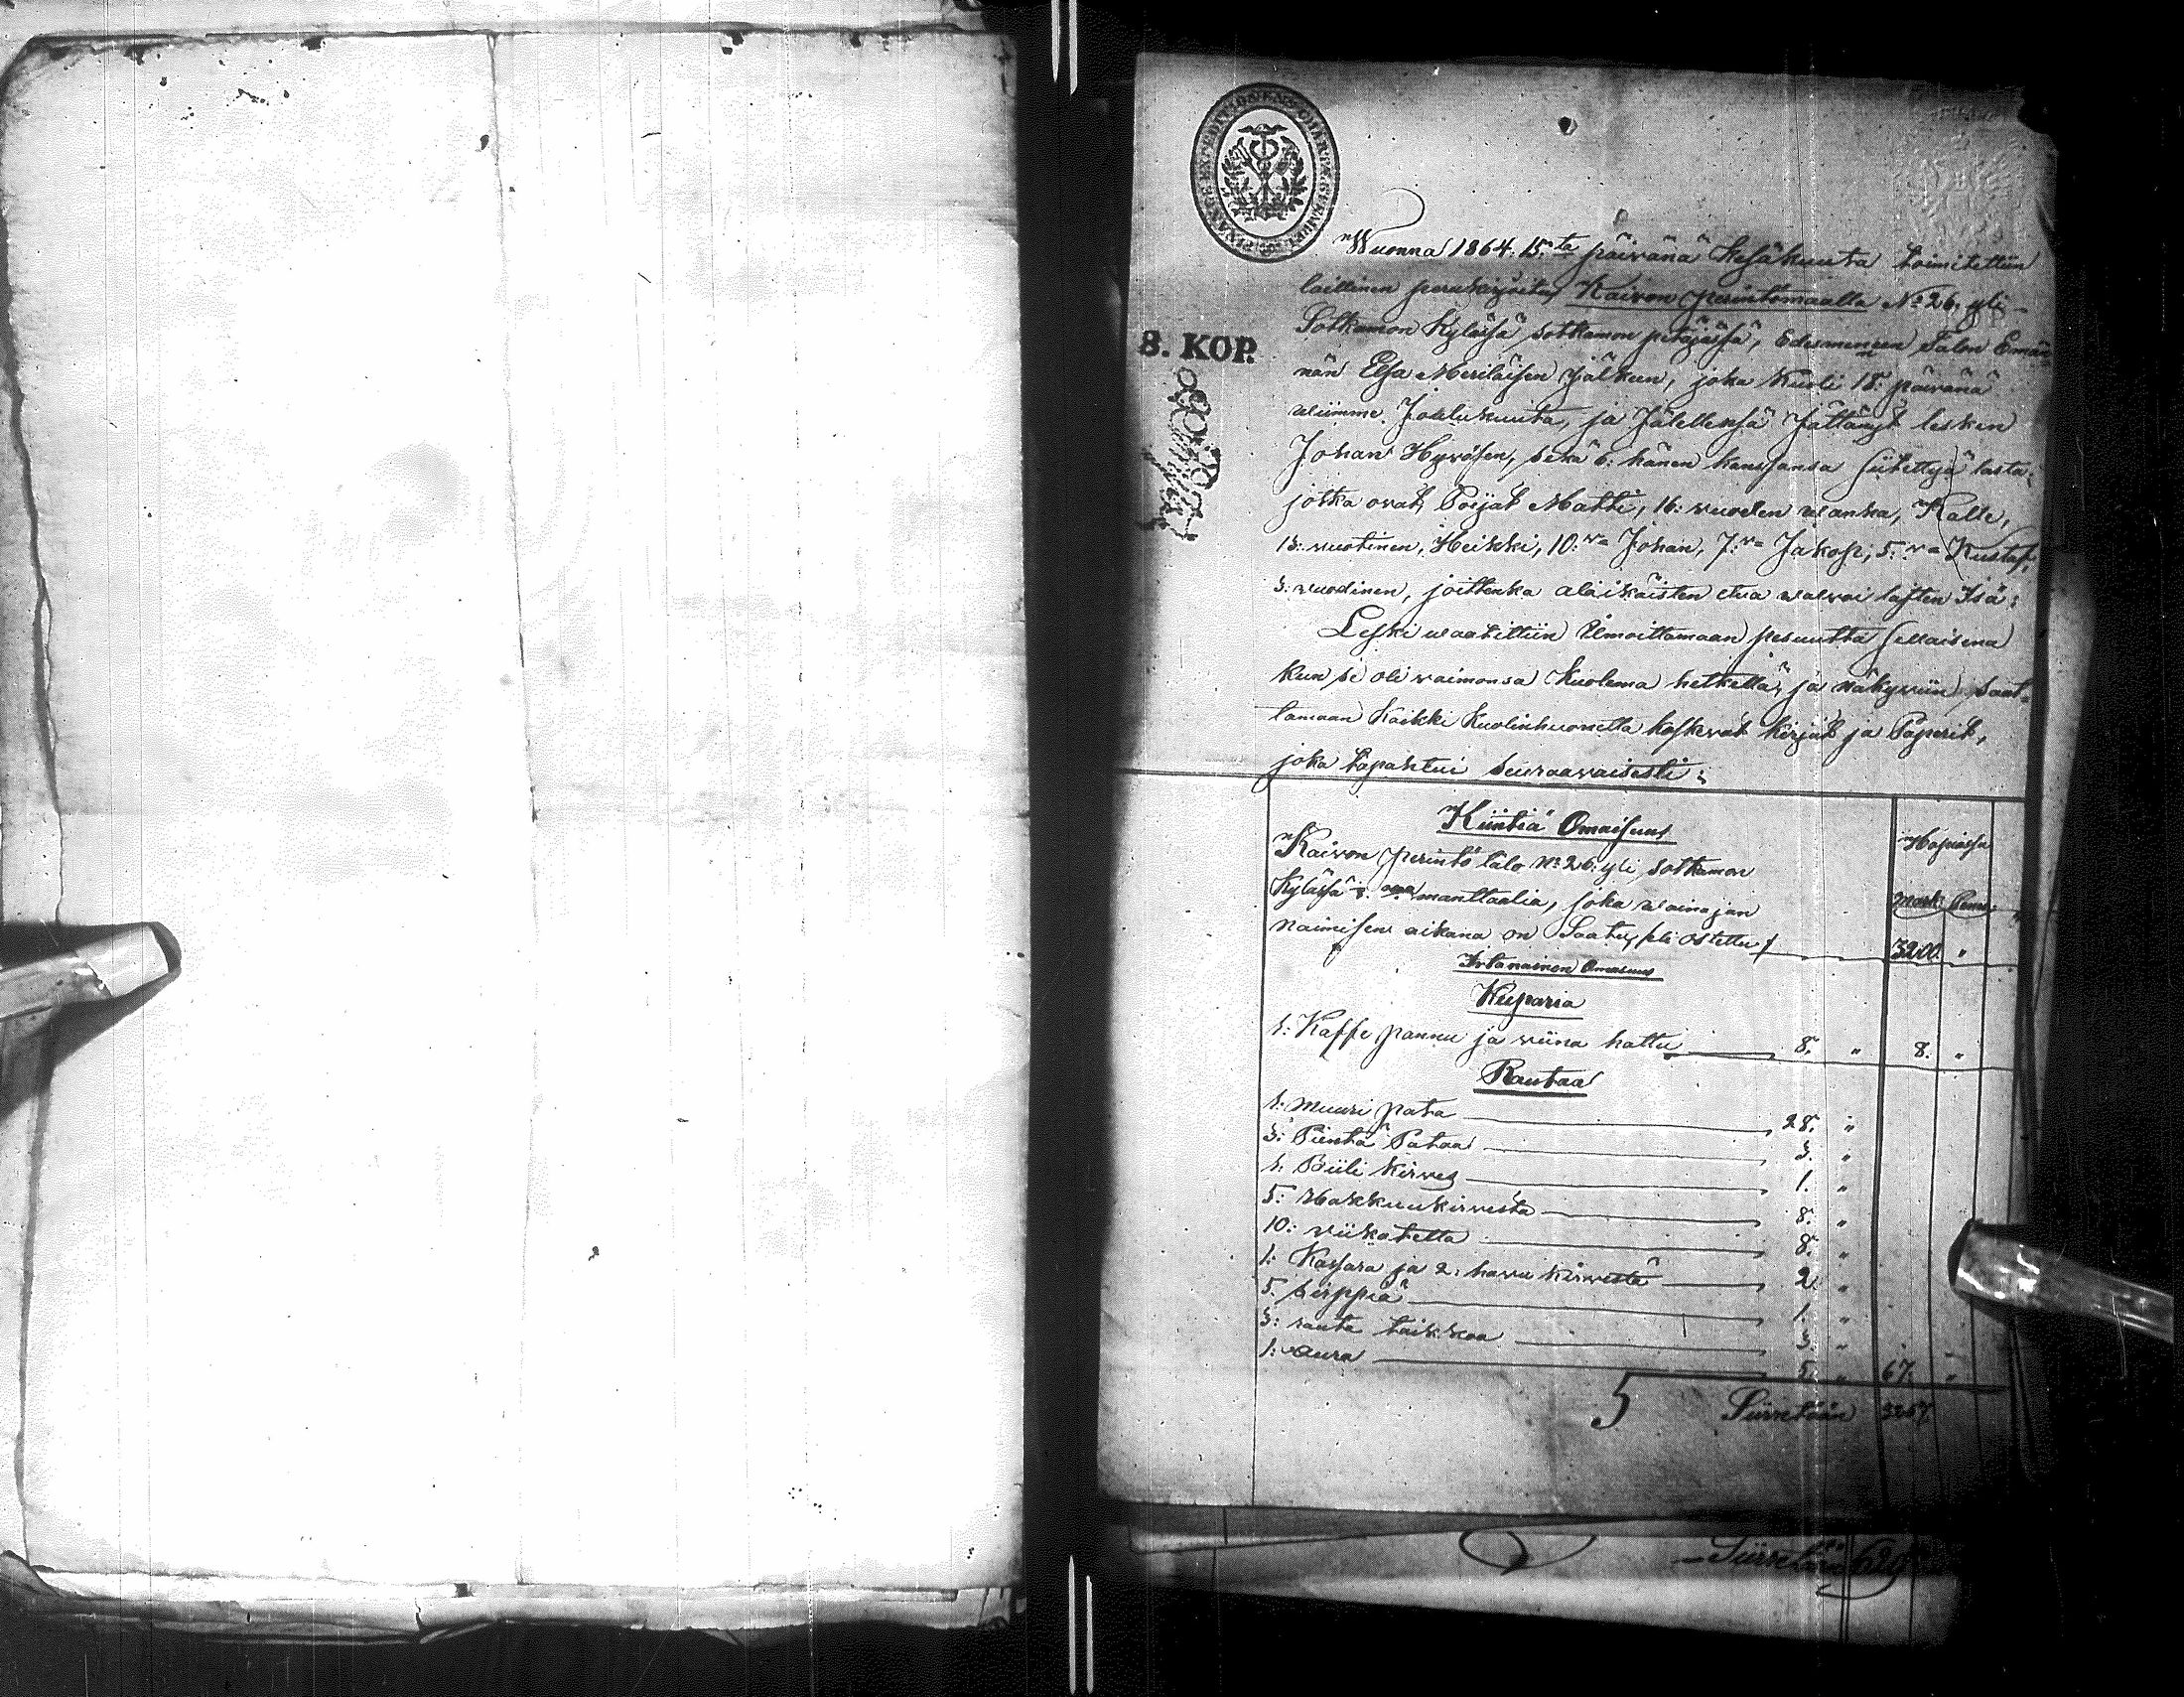 Wuonna 1864. 15.ta päivänä Kesäkuuta toimitettiin
laillinen perukirjoitus Kaivon perintömaalla No 26. yli
Sotkamon Kylässä Sotkamon pitäjässä, Edesmengen Talon Emän
8. KOP.
nän Elsa Meriläisen jälkeen, joka kuoli 18. päivänä
wiimme Joulukuuta, ja Jälellensä Jättänyt lesken
Johan Hyvösen, sekä 6: hänen kanssansa siitettyä lasta:
jotka ovat, Poijat Matti, 16: vuoden wanha, Kalle,
13: vuotinen, Heikki, 10: va Johan, 7: va Jakop, 5: va Kustaf,
3: vuodinen, joittenka alaikäisten etua walwoi lasten Isä:
Leski waatittiin Ilmoittamaan pesuutta sellaisena
kun se oli vaimonsa Kuolema hetkellä, ja näkyviin saat-
tamaan Kaikki Kuolinhuonetta koskevat kirjat ja Paperit,
joka tapahtui seuraavaisesti:
Kiintiä Omaisuus
Hopiassa
Kaivon perintö talo No 26: yli Sotkamon
Kylässä manttaalia, joka wainajan
Mark: Penni
naimisen aikana on Saatu, eli ostettu 3200. "
Irtanainen Omaisuus
Kuparia
1: Kaffe pannu ja viina hattu 8. " 8. "
Rautaa
1: Muuri pata 28. "
3: Pientä Pataa 3. "
1: Piili kirves 1. "
5: Hakkuukirvestä 8. "
10: viikatetta 8. "
1: Kassara ja 2: havu kirvestä 2 "
5: Sirppiä 1. "
3: rauta taikkoa 3. "
1: Aura 5. " 67. "
5 Siirretään
Siirretään